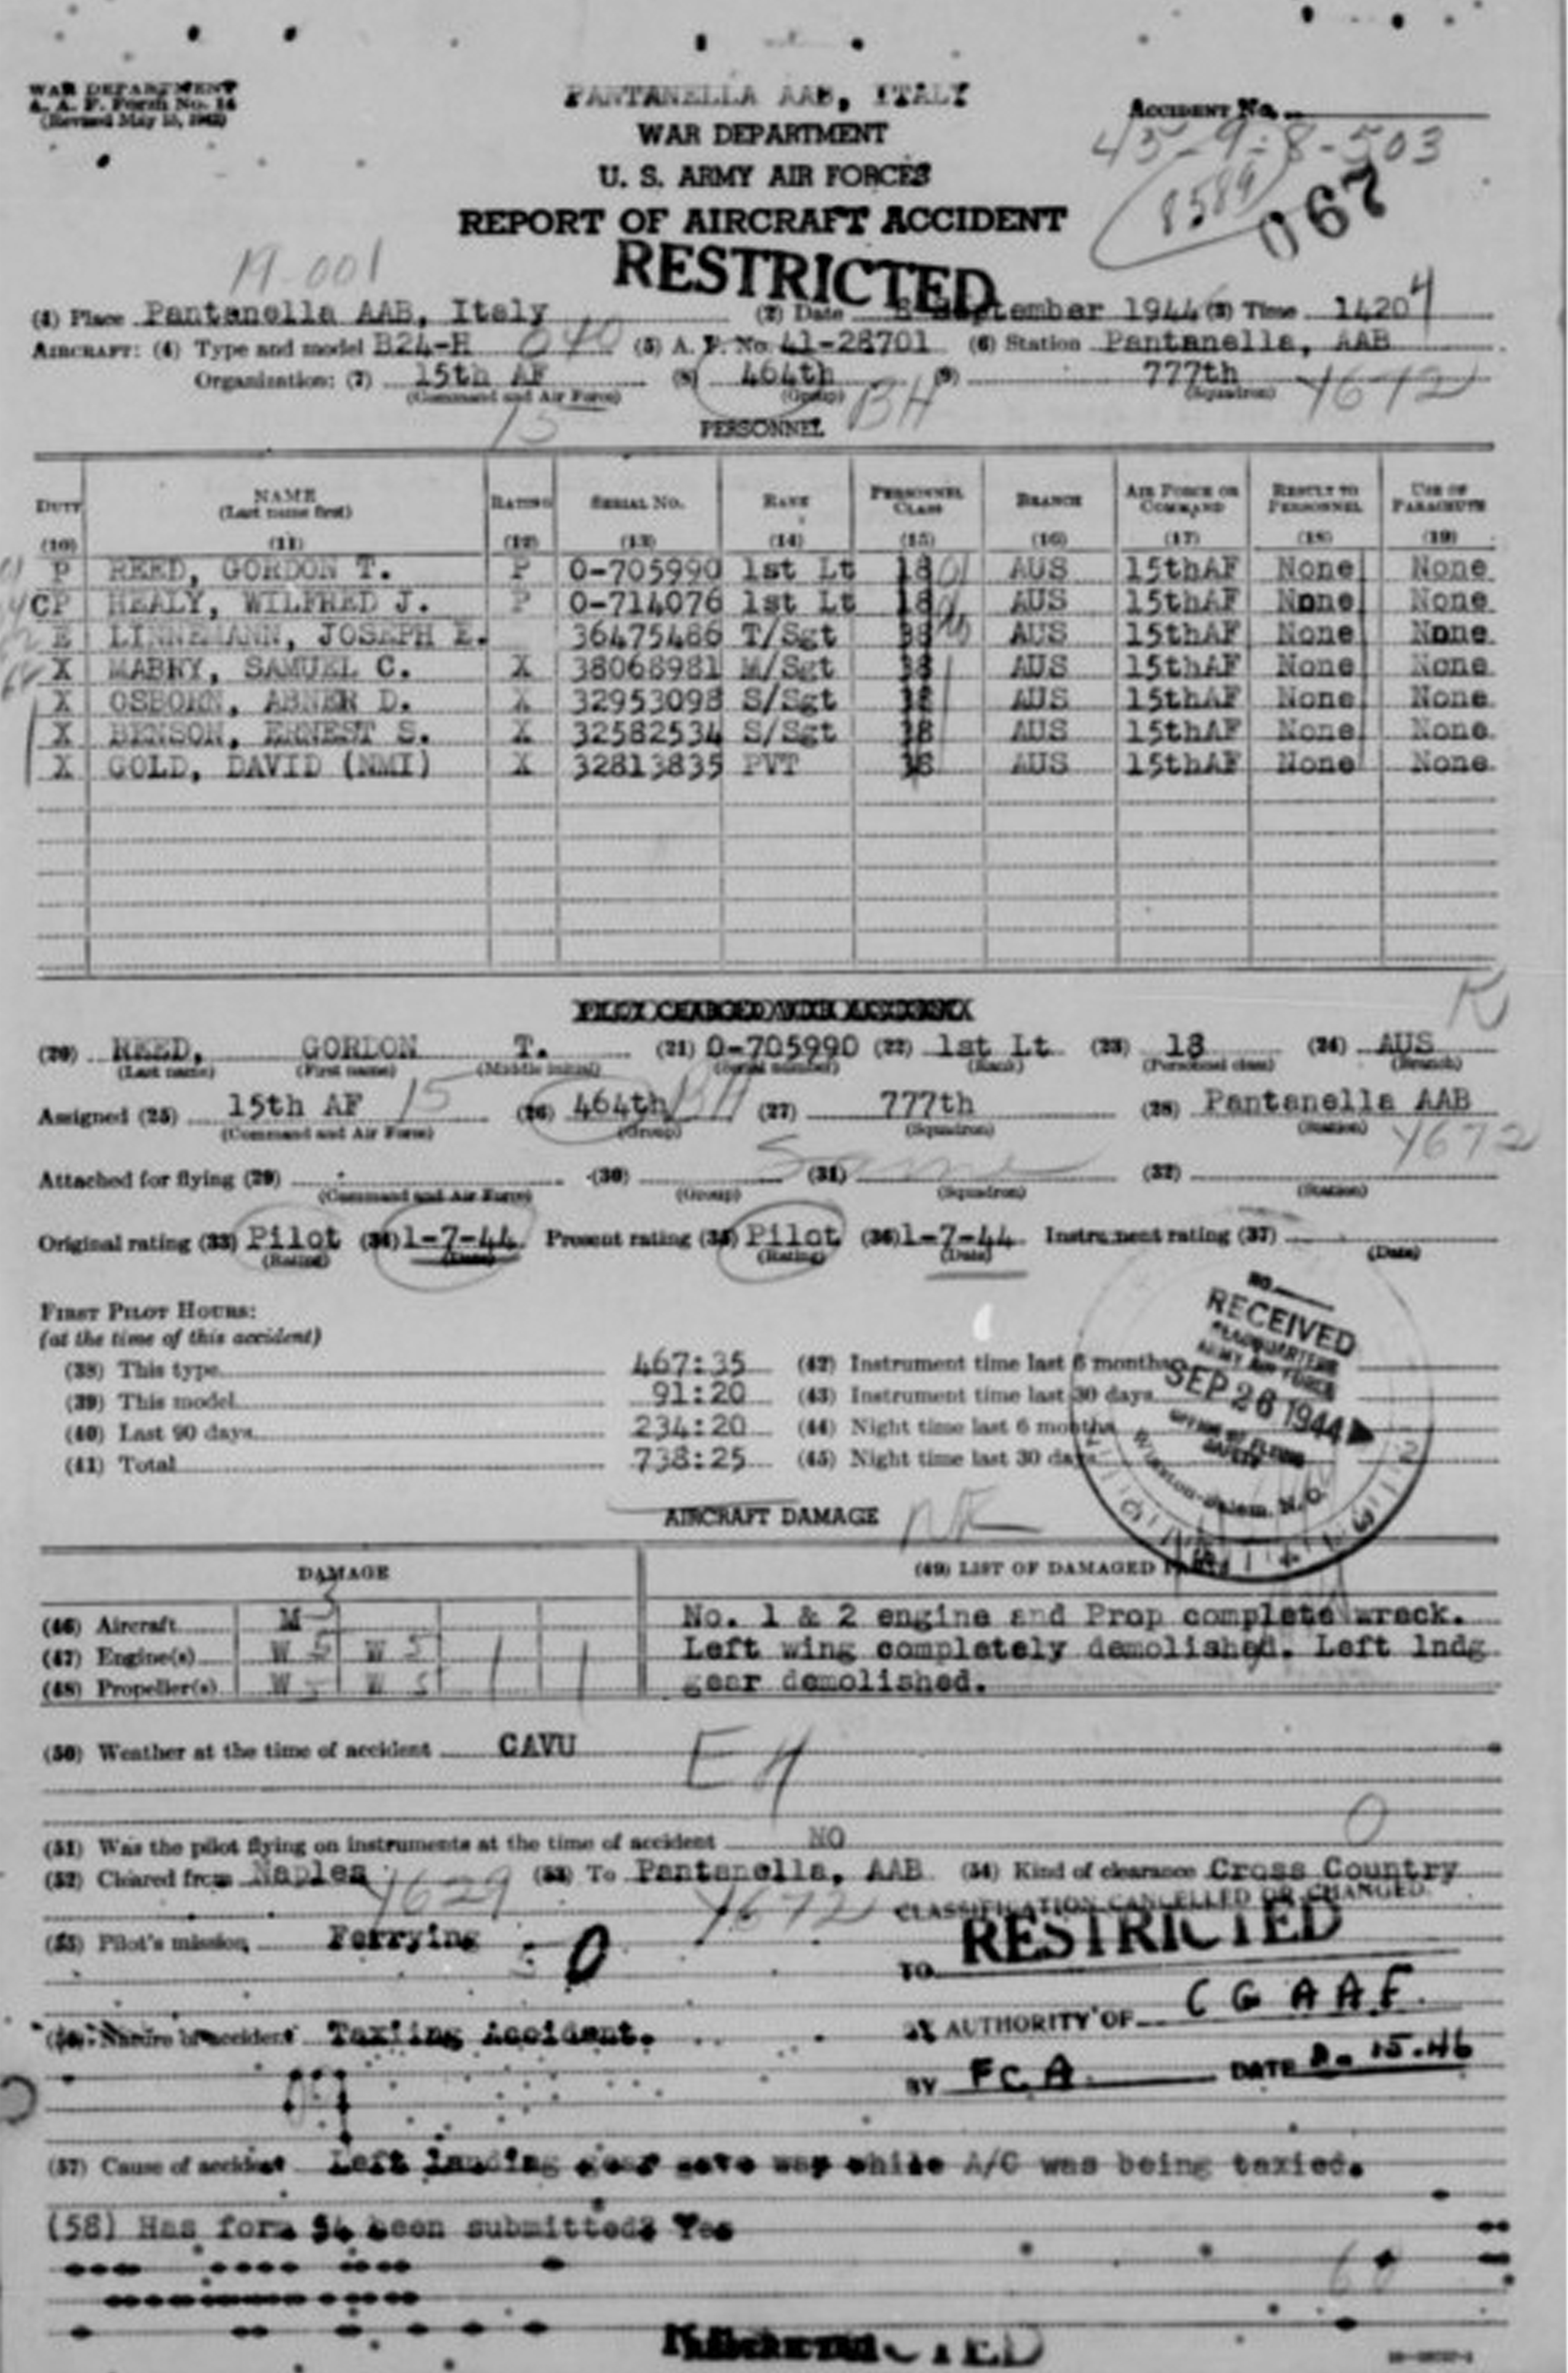 WAR DEPARTMENT
A. A. F. Form No. 14
(Revised May 15, 1942)
PANTANELLA AAB, ITALY
WAR DEPARTMENT
U. S. ARMY AIR FORCES
REPORT OF AIRCRAFT ACCIDENT
RESTRICTED
ACCIDENT No.
45-9-8-503
8589
067
19-001
(1) Place Pantanella AAB, Italy (2) Date September 1944 (3) Time 1420 4
AIRCRAFT: (4) Type and model B24-H 040 (5) A. F. No. 41-28701 (6) Station Pantanella, AAB
Organization: (7) 15th AF (8) 464th BH (9) 777th 4672
(Command and Air Force) (Group) (Squadron)
15
PERSONNEL
DUTY NAME (Last name first) RATING SERIAL No. RANK PERSONNEL CLASS BRANCH AIR FORCE OR COMMAND RESULT TO PERSONNEL USE OF PARACHUTE
(10) (11) (12) (13) (14) (15) (16) (17) (18) (19)
P REED, GORDON T. P 0-705990 1st Lt 18 01 AUS 15thAF None None
CP HEALY, WILFRED J. P 0-714076 1st Lt 18 AUS 15thAF None None
E LINNEMANN, JOSEPH E. 36475486 T/Sgt 38 AUS 15thAF None None
X MABRY, SAMUEL C. X 38068981 M/Sgt 38 AUS 15thAF None None
X OSBORN, ABNER D. X 32953098 S/Sgt AUS 15thAF None None
X BENSON, ERNEST S. X 32582534 S/Sgt 18 AUS 15thAF None None
X GOLD, DAVID (NMI) X 32813835 PVT AUS 15thAF None None
PILOT CHARGED WITH ACCIDENT
K
(20) REED, GORDON T. (21) 0-705990 (22) 1st Lt (23) 18 (24) AUS
(Last name) (First name) (Middle initial) (Serial number) (Rank) (Personnel class) (Branch)
Assigned (25) 15th AF 15 (26) 464th BH (27) 777th (28) Pantanella AAB
(Command and Air Force) (Group) (Squadron) (Station) 4672
Attached for flying (29) (30) Same (31) (32)
(Command and Air Force) (Group) (Squadron) (Station)
Original rating (33) Pilot (34) 1-7-44 Present rating (35) Pilot (36) 1-7-44 Instrument rating (37)
(Rating) (Date) (Rating) (Date) (Date)
FIRST PILOT HOURS:
(at the time of this accident)
(38) This type 467:35 (42) Instrument time last 6 months
(39) This model 91:20 (43) Instrument time last 30 days
(40) Last 90 days 234:20 (44) Night time last 6 months
(41) Total 738:25 (45) Night time last 30 days
NO.
RECEIVED
HEADQUARTERS
ARMY AIR FORCE
SEP 26 1944
OFFICE OF FLYING
SAFETY
Winston-Salem, N. C.
AIRCRAFT DAMAGE
DAMAGE (49) LIST OF DAMAGED PARTS
(46) Aircraft M 3 No. 1 & 2 engine and Prop complete wreck.
(47) Engine(s) W 5 W 5 Left wing completely demolished. Left lndg
(48) Propeller(s) W 5 W 5 gear demolished.
(50) Weather at the time of accident CAVU
(51) Was the pilot flying on instruments at the time of accident NO 0
(52) Cleared from Naples 4629 (53) To Pantanella, AAB 4672 (54) Kind of clearance Cross Country
CLASSIFICATION CANCELLED OR CHANGED
(55) Pilot's mission Ferrying 0
TO RESTRICTED
(56) Nature of accident Taxiing Accident.
BY AUTHORITY OF C G A A F
BY F C A DATE
(57) Cause of accident Left landing gear gave way while A/C was being taxied.
(58) Has form 54 been submitted? Yes